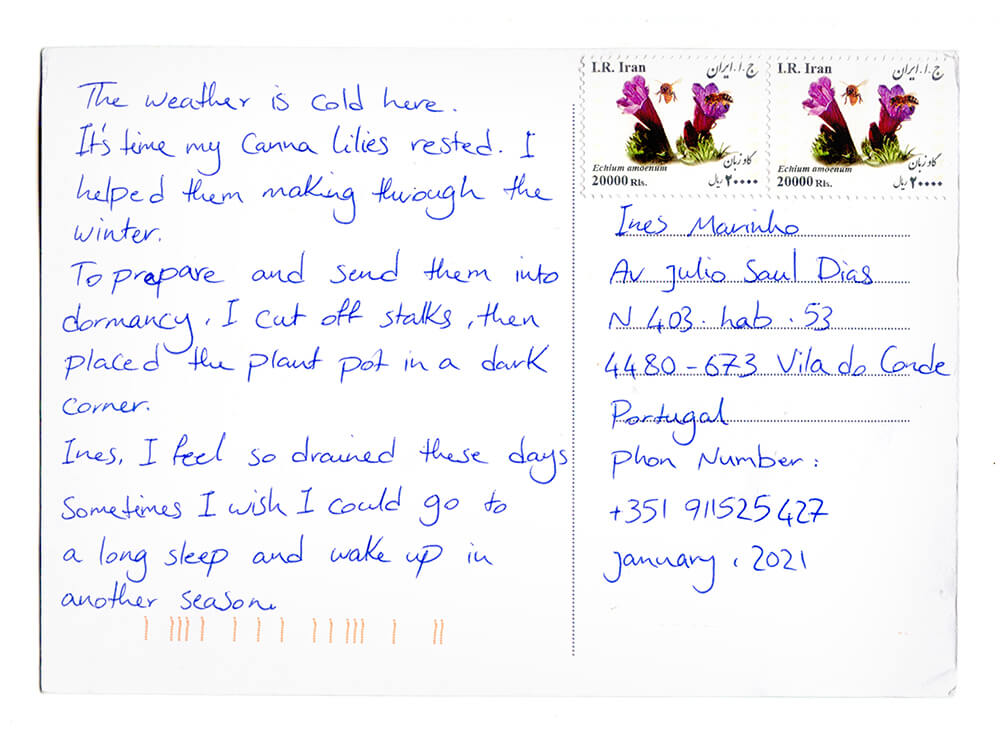 The weather is cold here.
It's time my Canna lilies rested. I
helped them making through the
winter.
To prepare and send them into
dormancy, I cut off stalks, then
placed the plant pot in a dark
corner.
Ines, I feel so drained these days
Sometimes I wish I could go to
a long sleep and wake up in
another season.
I.R. Iran ج.ا.ایران
Echium amoenum گاوزبان
20000 Rls. ۲۰۰۰۰ ریال
I.R. Iran ج.ا.ایران
Echium amoenum گاوزبان
20000 Rls. ۲۰۰۰۰ ریال
Ines Marinho
Av Julio Saul Dias
N 403. hab. 53
4480-673 Vila do Conde
Portugal
Phon Number:
+351 911525427
january, 2021